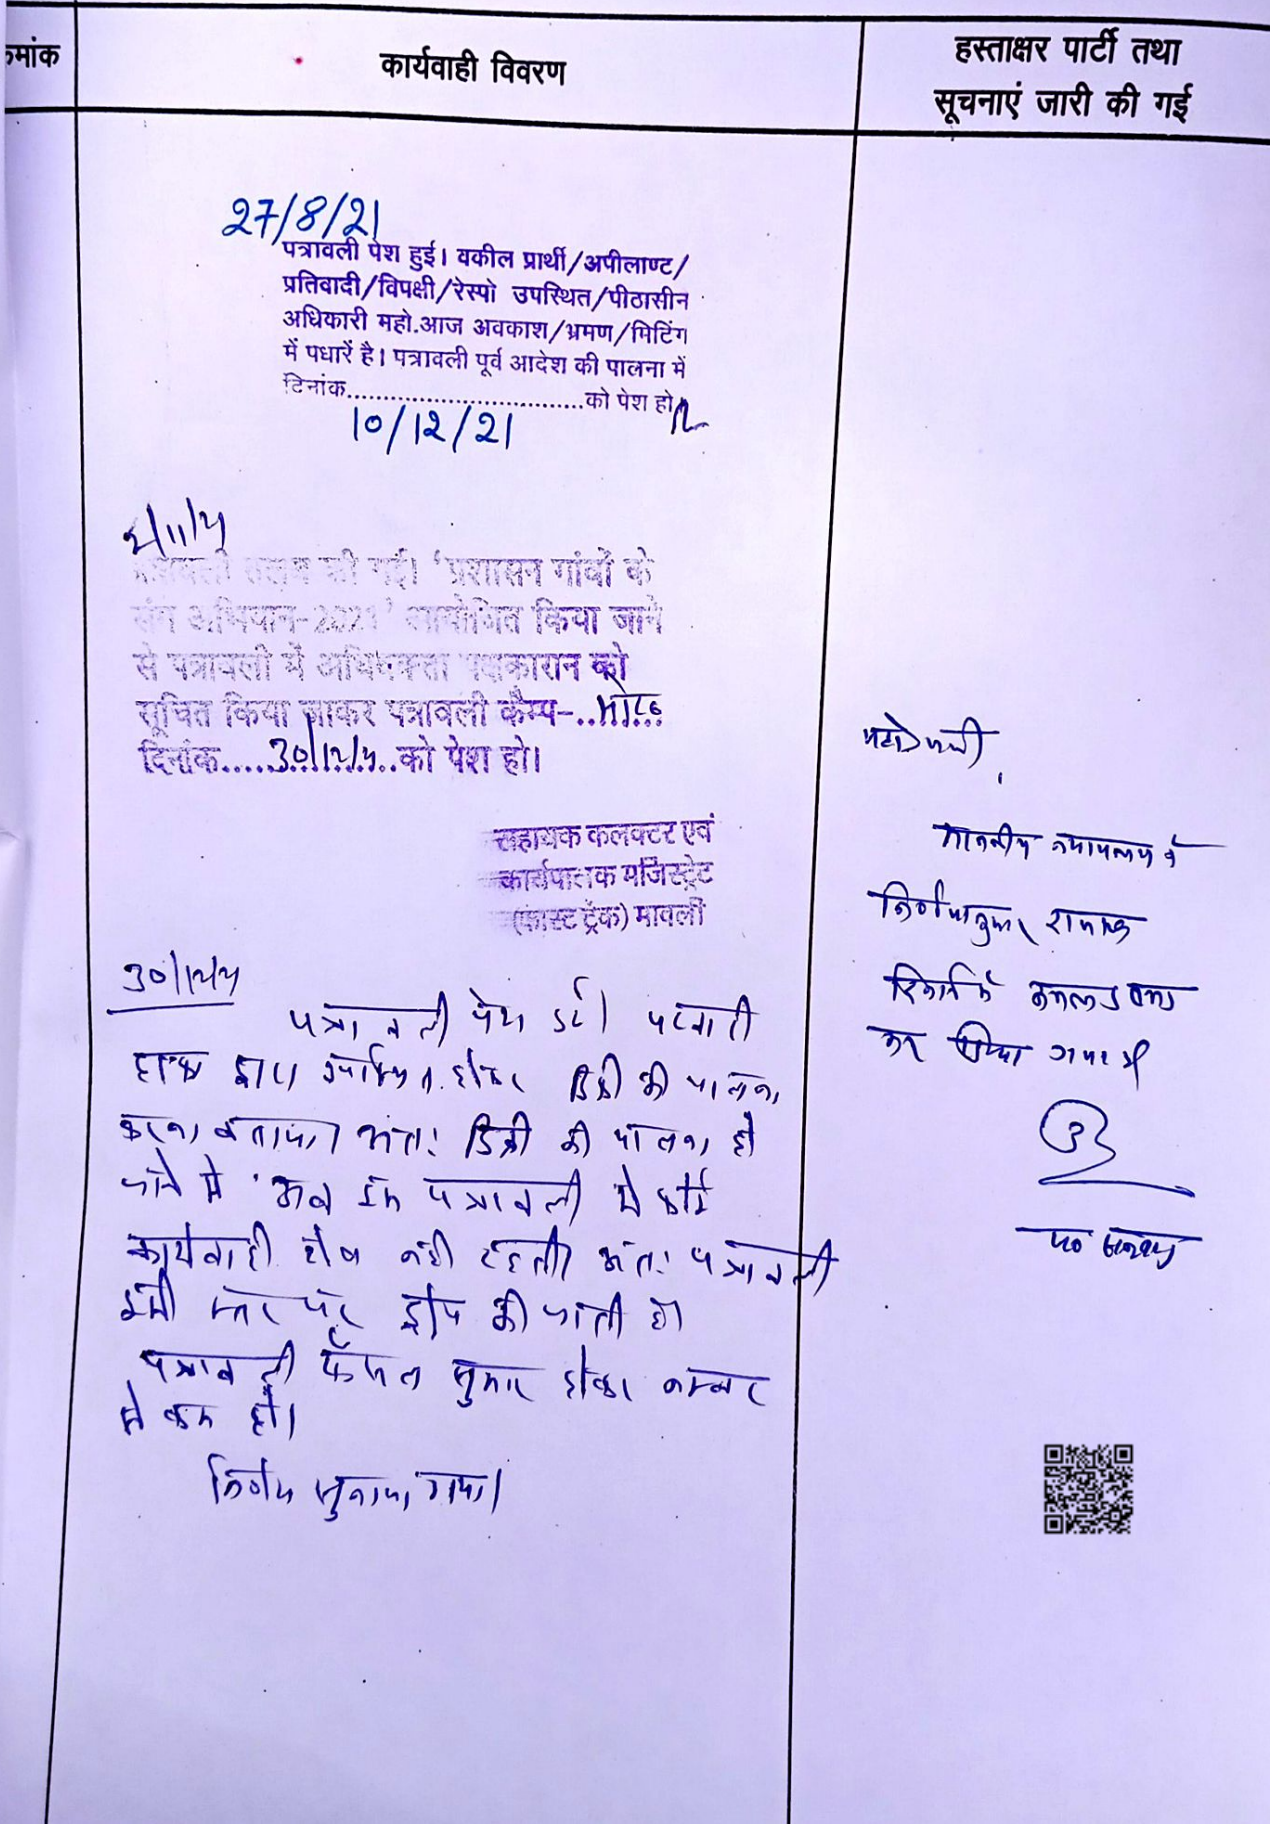 क्रमांक
कार्यवाही विवरण
हस्ताक्षर पार्टी तथा
सूचनाएं जारी की गई
27/8/21
पत्रावली पेश हुई। वकील प्रार्थी/अपीलाण्ट/
प्रतिवादी/विपक्षी/रेस्पो उपस्थित/पीठासीन
अधिकारी महो.आज अवकाश/भ्रमण/मिटिंग
में पधारें है। पत्रावली पूर्व आदेश की पालना में
दिनांक................................को पेश हो
10/12/21
पत्रावली तलब की गई। 'प्रशासन गांवों के
संग अभियान-2021' आयोजित किया जाने
से पत्रावली में अधिवक्ता पक्षकारान को
सूचित किया जाकर पत्रावली कैम्प-
दिनांक.....30/12/21..को पेश हो।
सहायक कलक्टर एवं
कार्यपालक मजिस्ट्रेट
(फास्ट ट्रेक) मावली
30/12/21
पत्रावली पेश हुई। पटवारी
हल्का द्वारा उपस्थित होकर डिक्री की पालना
करना बताया। अतः डिक्री की पालना हो
जाने से अब इस पत्रावली में कोई
कार्यवाही शेष नहीं रहती। अतः पत्रावली
इसी स्तर पर ड्रॉप की जाती है।
पत्रावली फैसल शुमार होकर नम्बर
से कम हो।
निर्णय सुनाया गया।
महोदयजी,
माननीय न्यायालय के
निर्णयानुसार राजस्व
रिकॉर्ड में अमल दरामद
कर दिया गया है